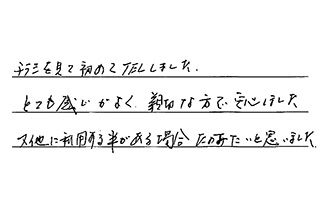 チラシを見て初めてTELしました.
とても感じがよく、親切な方で安心しました
又他に利用する事がある場合たのみたいと思いました